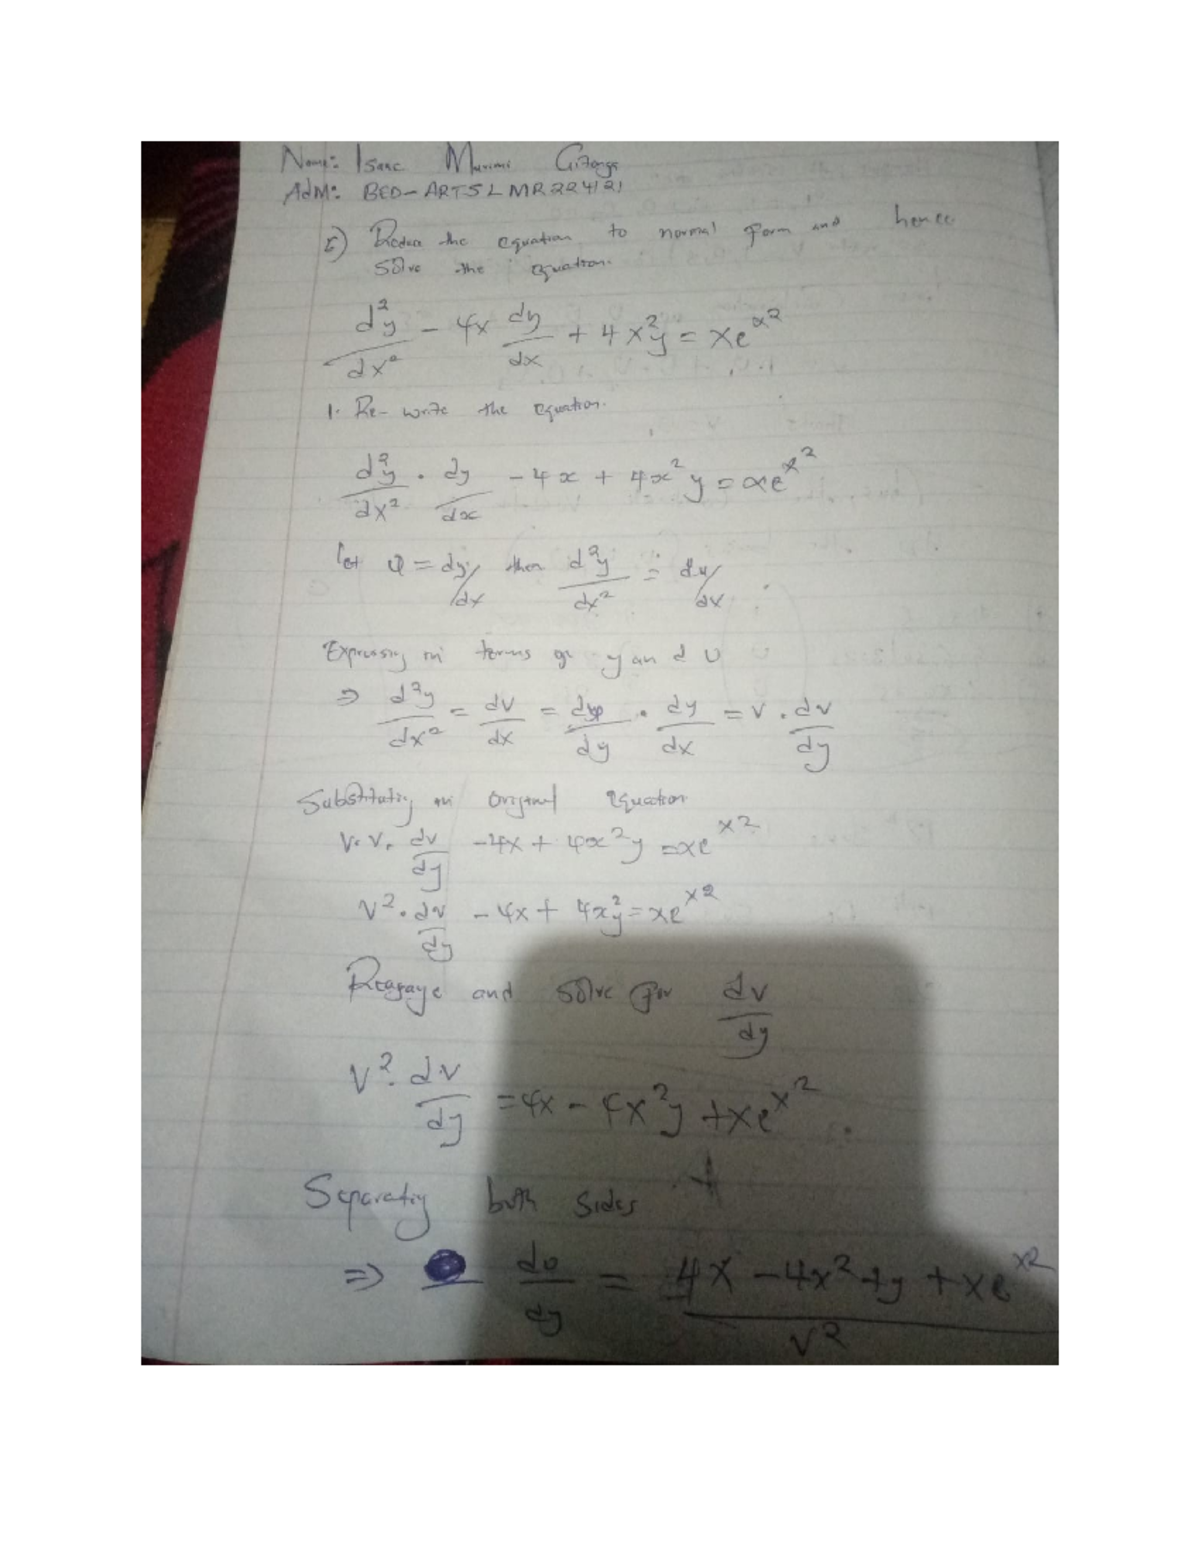 Name: Isaac Murimi Gitonga
ADM: BED-ARTSLMR224121
Reduce the equation to normal form and hence
solve the equation.
d²y/dx² - 4x dy/dx + 4x²y = xe^x2
1. Re-write the equation.
d²y/dx² . dy/dx - 4x + 4x²y = xe^x2
let = dy/dx then d²y/dx² =
Expressing in terms of y and U
⇒ d²y/dx² = dv/dx = . dy/dx = v . dv/dy
Substituting in original equation
V. V. dv/dy - 4x + 4x²y = xe^x2
V² . dv/dy - 4x + 4x²y = xe^x2
and solve for dv/dy
V² . dv/dy = 4x - 4x²y + xe^x2
Separatig both sides
⇒ dv/dy = 4x - 4x² + y + xe^x2 / v²